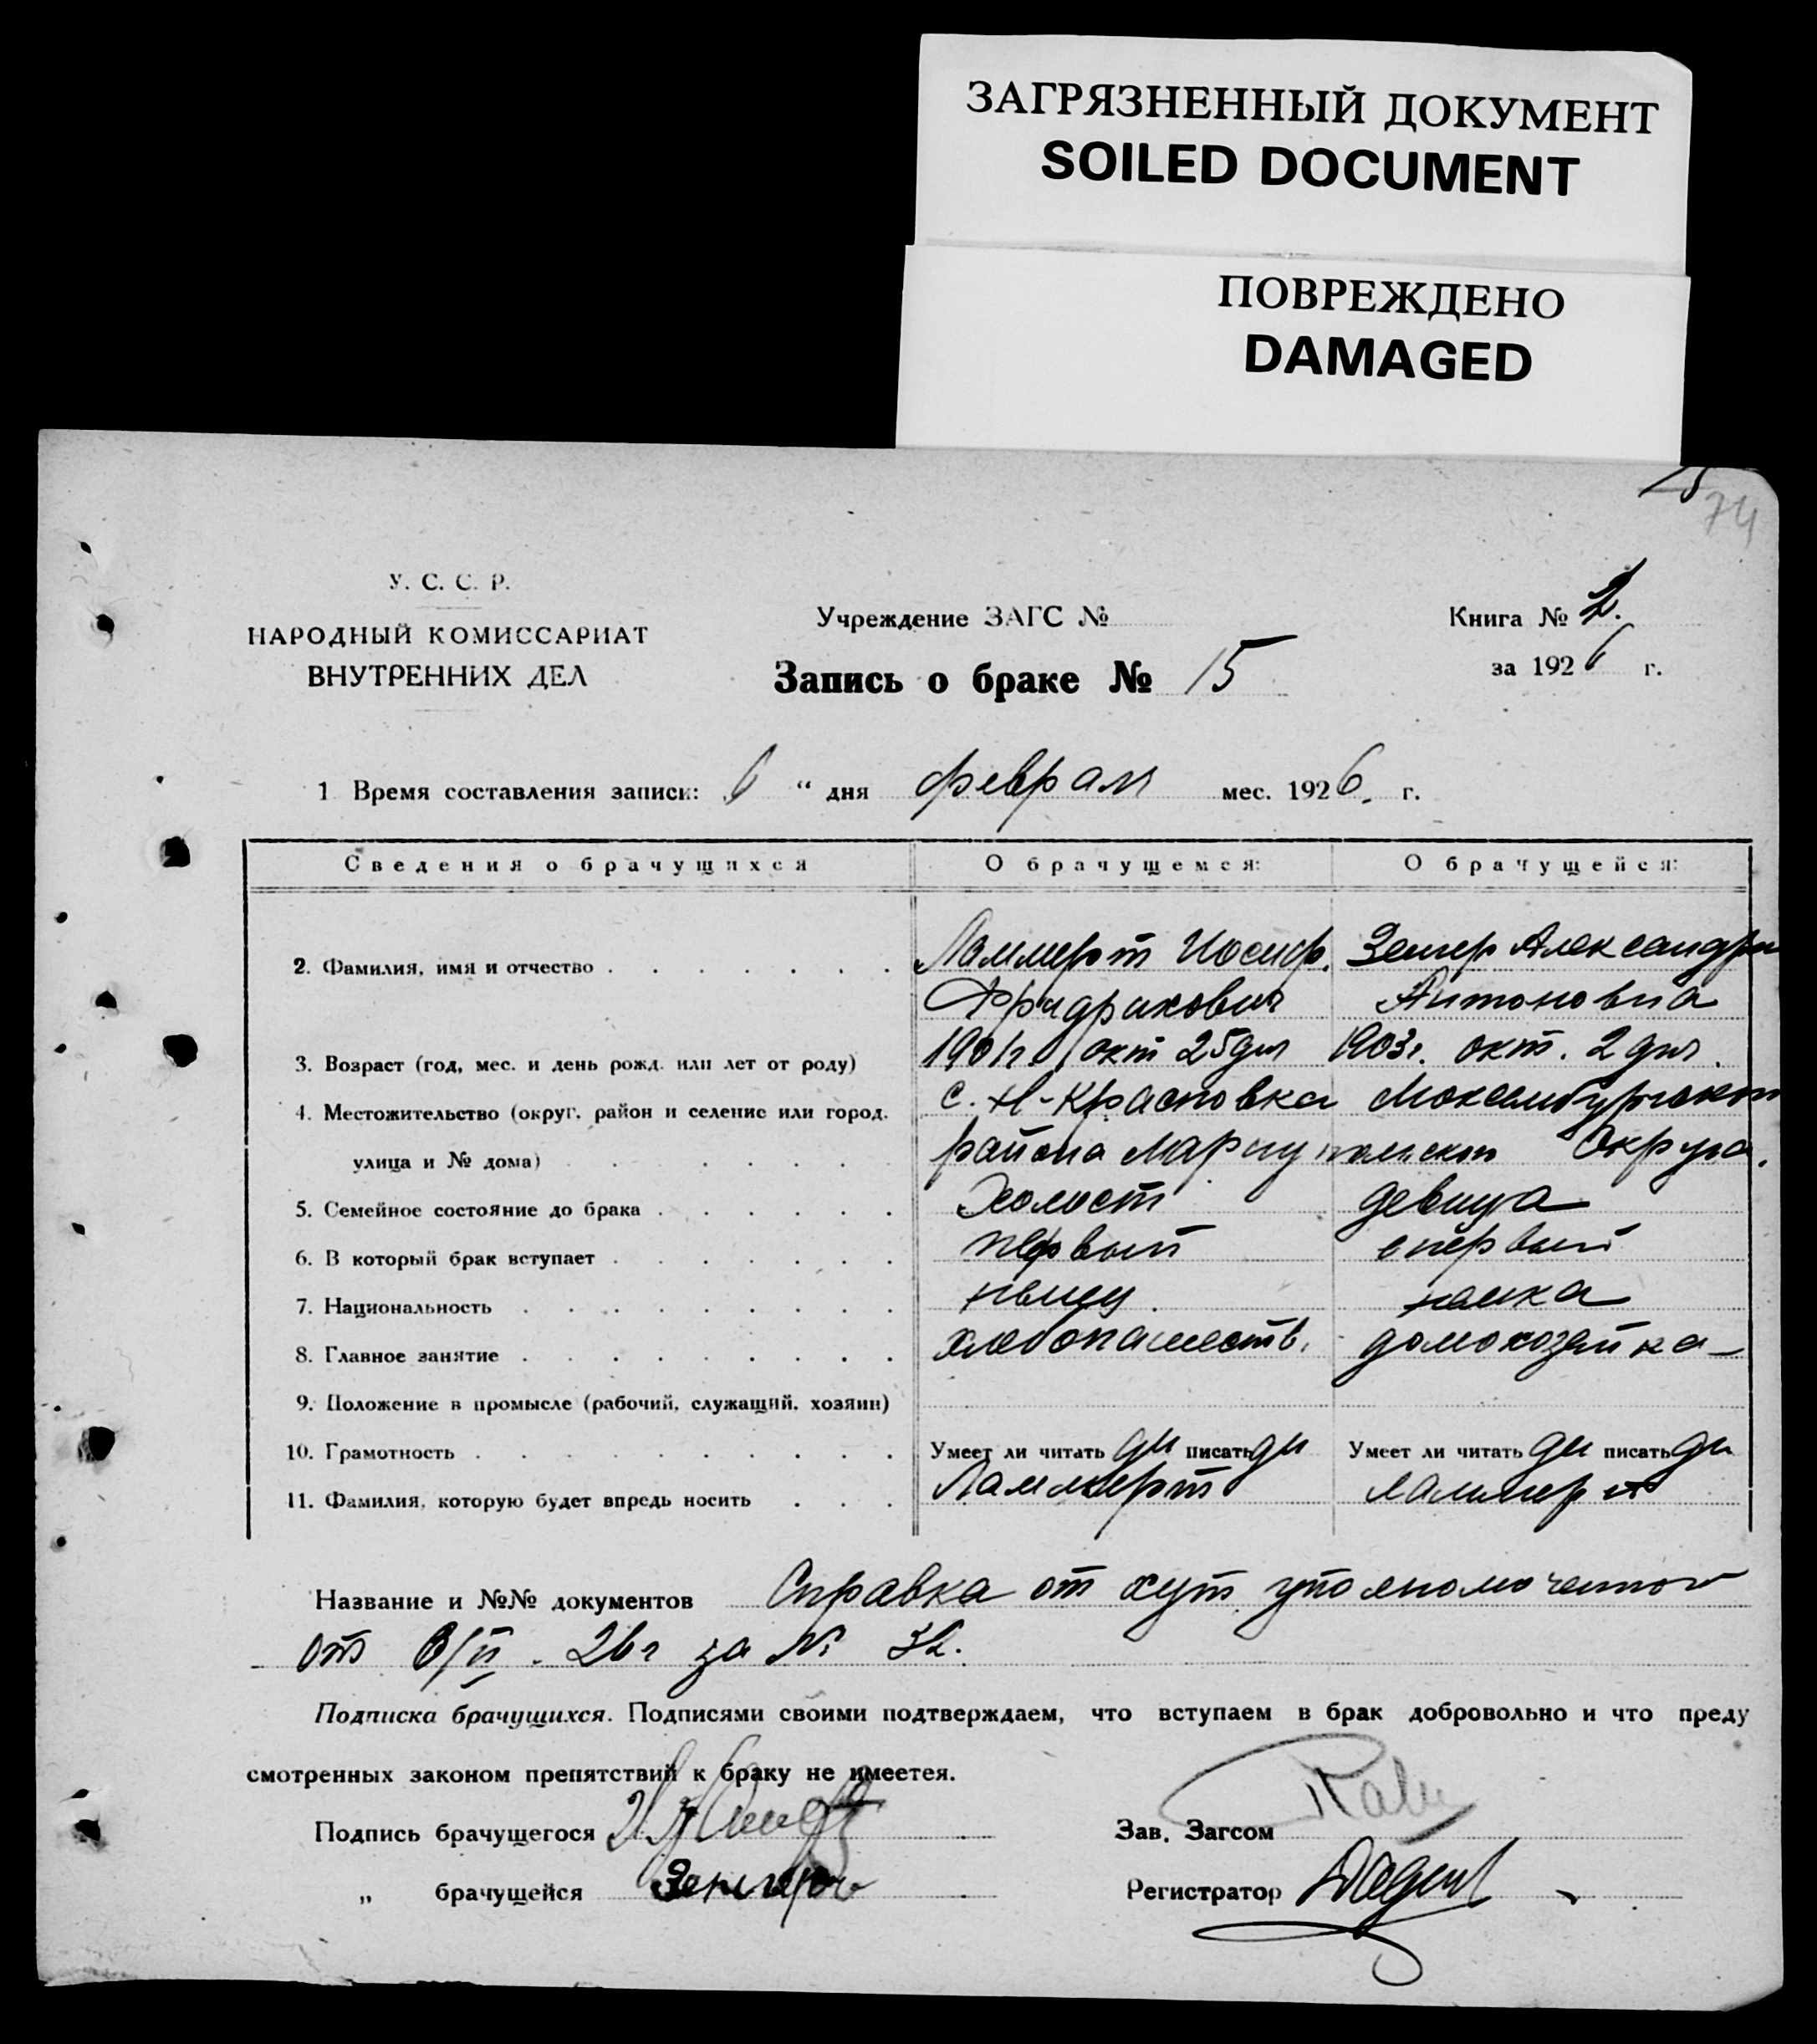 ЗАГРЯЗНЕННЫЙ ДОКУМЕНТ
SOILED DOCUMENT
ПОВРЕЖДЕНО
DAMAGED
15
74
У. С. С. Р.
НАРОДНЫЙ КОМИССАРИАТ
ВНУТРЕННИХ ДЕЛ
Учреждение ЗАГС №
Запись о браке № 15
Книга № 2.
за 1926 г.
1 Время составления записи: 6 “ дня февраля мес. 1926. г.
Сведения о брачущихся О брачущемся: О брачущейся:
2. Фамилия, имя и отчество Ламмерт Иосиф. Зенгер Александра
Фридрихович Антоновна
3. Возраст (год, мес. и день рожд. или лет от роду) 1901г. окт 25 дня 1903г. окт. 2 дня.
4. Местожительство (округ, район и селение или город, с. Н-Красновка
улица и № дома) района Мариупольской Округа.
5. Семейное состояние до брака Холост девица
6. В который брак вступает первый первый
7. Национальность немец немка
8. Главное занятие хлебопашеств. домохозяйка
9. Положение в промысле (рабочий, служащий, хозяин)
10. Грамотность Умеет ли читать да писать да Умеет ли читать да писать да
11. Фамилия, которую будет впредь носить Ламмерт Ламмерт
Название и №№ документов Справка от хут. уполномоченного
от 6/II - 26г за № 32.
Подписка брачущихся. Подписями своими подтверждаем, что вступаем в брак добровольно и что преду
смотренных законом препятствий к браку не имеетея.
Подпись брачущегося
Зав. Загсом
„ брачущейся
Регистратор